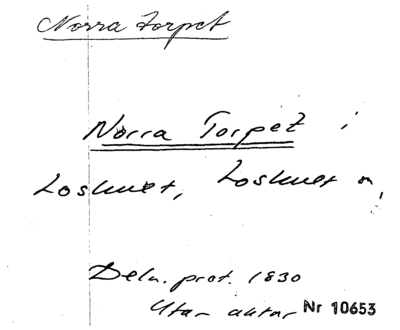 Norra Torpet
Norra Torpet i
Loshult, Loshult sn,
Deln. prot. 1830
Utan aktnr Nr 10653